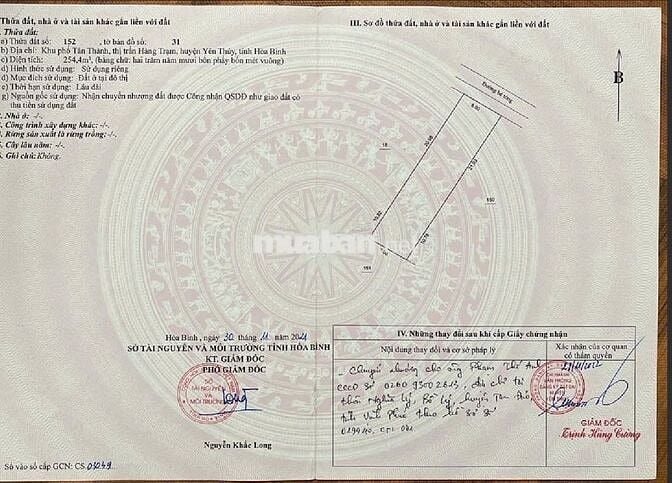 Thửa đất, nhà ở và tài sản khác gắn liền với đất
. Thửa đất:
a) Thửa đất số: 152, tờ bản đồ số: 31
b) Địa chỉ: Khu phố Tân Thành, thị trấn Hàng Trạm, huyện Yên Thủy, tỉnh Hòa Bình
c) Diện tích: 254,4m², (bằng chữ: hai trăm năm mươi bốn phảy bốn mét vuông)
d) Hình thức sử dụng: Sử dụng riêng
đ) Mục đích sử dụng: Đất ở tại đô thị
e) Thời hạn sử dụng: Lâu dài
g) Nguồn gốc sử dụng: Nhận chuyển nhượng đất được Công nhận QSDĐ như giao đất có
thu tiền sử dụng đất
2. Nhà ở: -/-.
3. Công trình xây dựng khác: -/-.
4. Rừng sản xuất là rừng trồng: -/-.
5. Cây lâu năm: -/-.
6. Ghi chú: Không.
Hòa Bình, ngày 30 tháng 11 năm 2021
SỞ TÀI NGUYÊN VÀ MÔI TRƯỜNG TỈNH HÒA BÌNH
KT. GIÁM ĐỐC
PHÓ GIÁM ĐỐC
SỞ
TÀI NGUYÊN
VÀ
MÔI TRƯỜNG
Nguyễn Khắc Long
Số vào sổ cấp GCN: CS.03049
III. Sơ đồ thửa đất, nhà ở và tài sản khác gắn liền với đất
B
Đường bê tông
20.98
21.93
18
150
10.79
151
muaban
IV. Những thay đổi sau khi cấp Giấy chứng nhận
Nội dung thay đổi và cơ sở pháp lý
Xác nhận của cơ quan
có thẩm quyền
- Chuyển nhượng cho ông Phạm Thế Anh
CCCD số địa chỉ tại
thôn Nghĩa Lý, huyện Tam
tỉnh Vĩnh Phúc theo hồ sơ số
GIÁM ĐỐC
Trịnh Hùng Cường